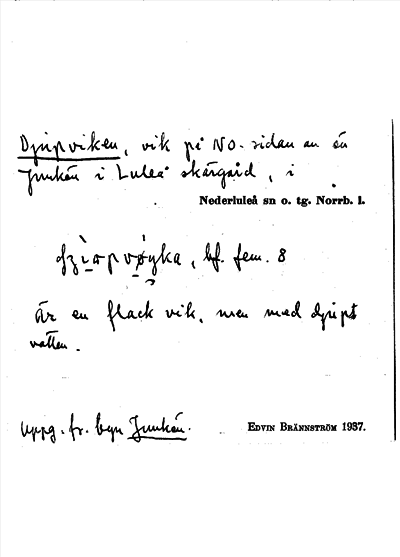 Djupviken, vik på NO-sidan av ön
Junkön i Luleå skärgård, i
Nederluleå sn o. tg. Norrb. l.
bf. fem. 8
Är en flack vik, men med djupt
vatten.
Uppg. fr. byn Junkön.
EDVIN BRÄNNSTRÖM 1937.